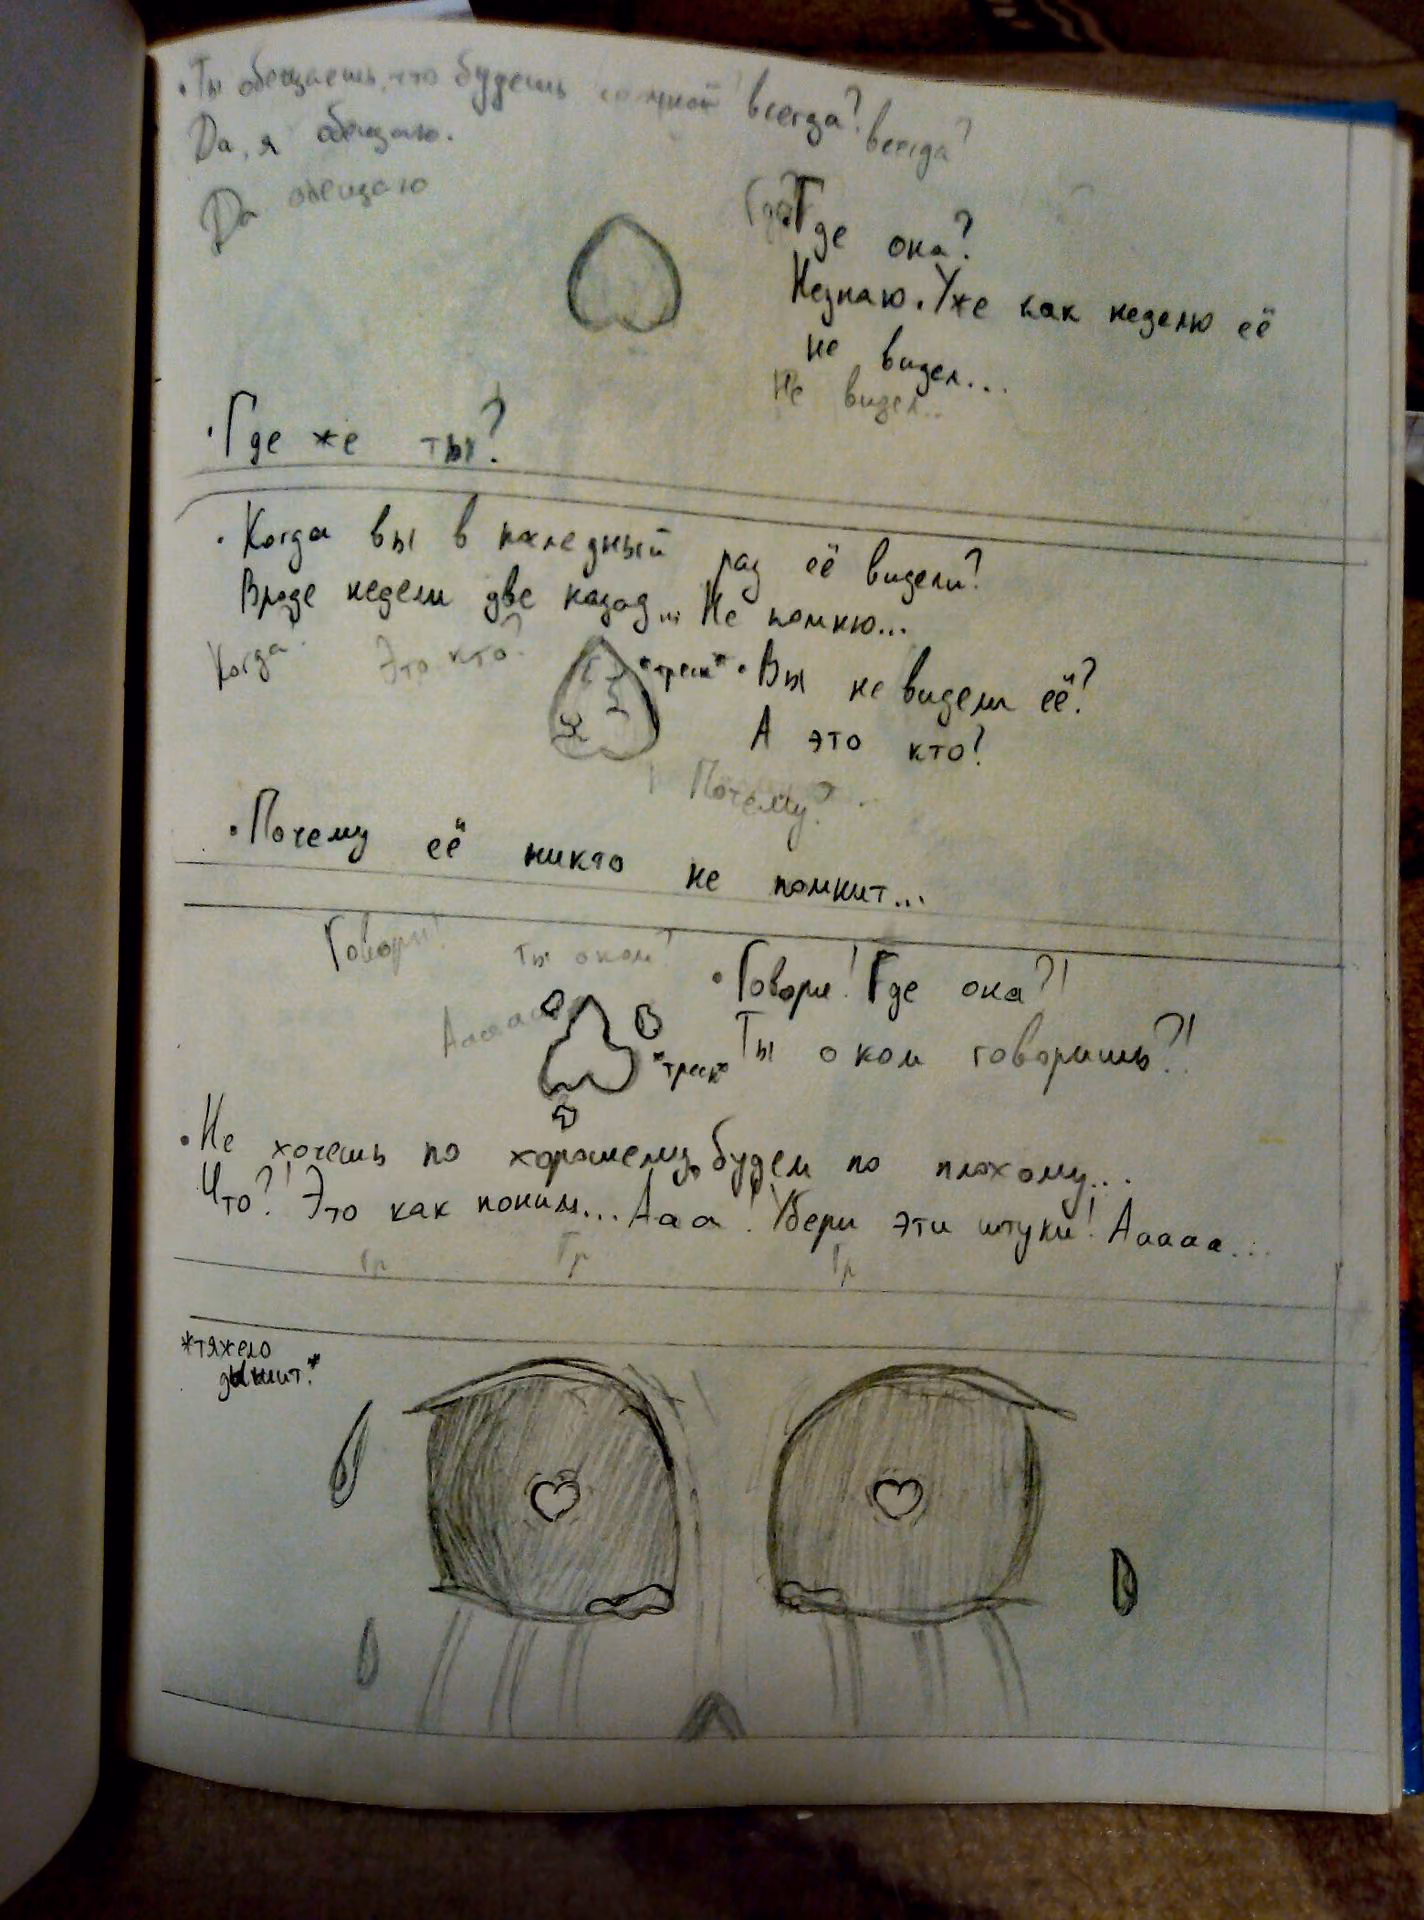 • Ты обещаешь, что будешь со мной всегда?
всегда?
Да, я обещаю.
Да обещаю
Где?
Где она?
Незнаю. Уже как неделю её
не видел...
Не видел..
• Где же ты?
• Когда вы в последный раз её видели?
Вроде недели две назад... Не помню...
Когда?
Это кто?
*треск*
• Вы не видели её?
А это кто?
Почему?
• Почему её никто не помнит...
Говори!
Ты о ком?
• Говори! Где она?!
Ааааа
*треск*
Ты о ком говоришь?!
• Не хочешь по хорошему, будем по плохому...
Что?! Это как поним... Ааа! Убери эти штуки! Ааааа...
Гр Гр Гр
*тяжело
дышит.*